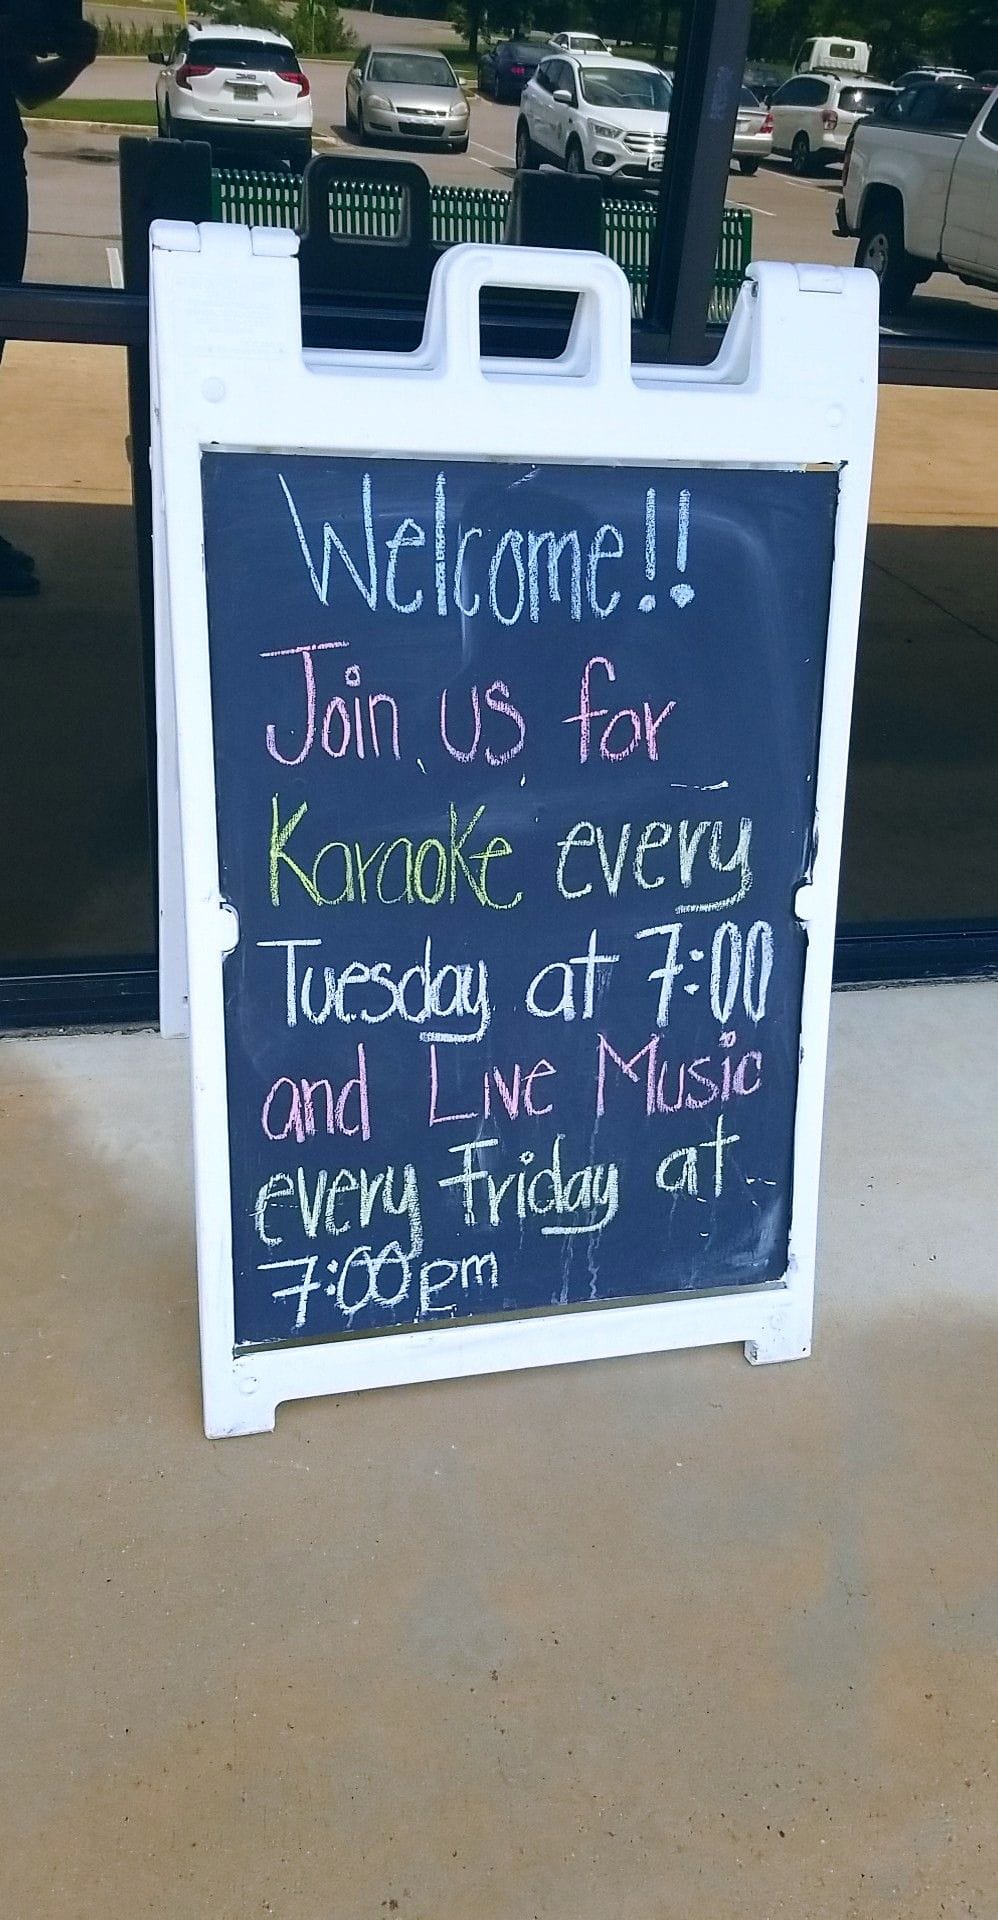 Welcome!!
Join us for
Karaoke every
Tuesday at 7:00
and Live Music
every Friday at
7:00pm